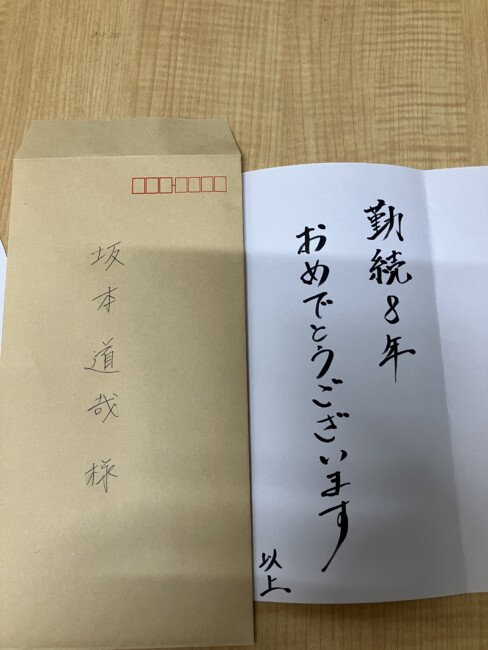 坂本道哉様
勤続8年
おめでとうございます
以上